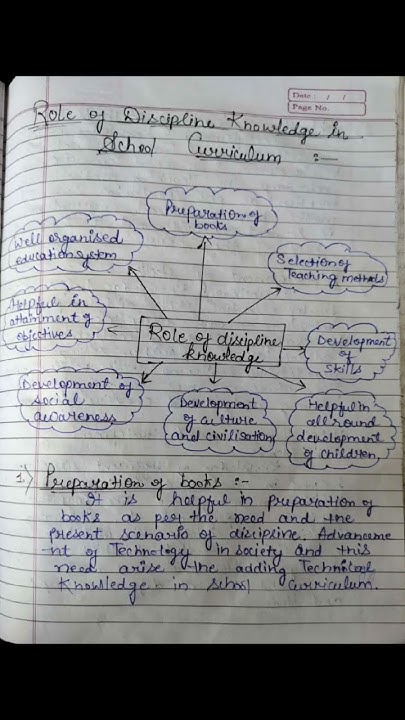 Date : / /
Page No.
Role of Discipline Knowledge in
School Curriculum :-
Preparation of
books
Well organised
education system
Selection of
Teaching methods
Helpful in
attainment of
objectives
Role of discipline
knowledge
Development
of
skills
Development of
social
awareness
Development
of culture
and civilisation
Helpful in
all round
development
of children
1.) Preparation of books :-
It is helpful in preparation of
books as per the need and the
present scenario of discipline. Advanceme
-nt of Technology in society and this
need arise the adding Technical
Knowledge in school curriculum.